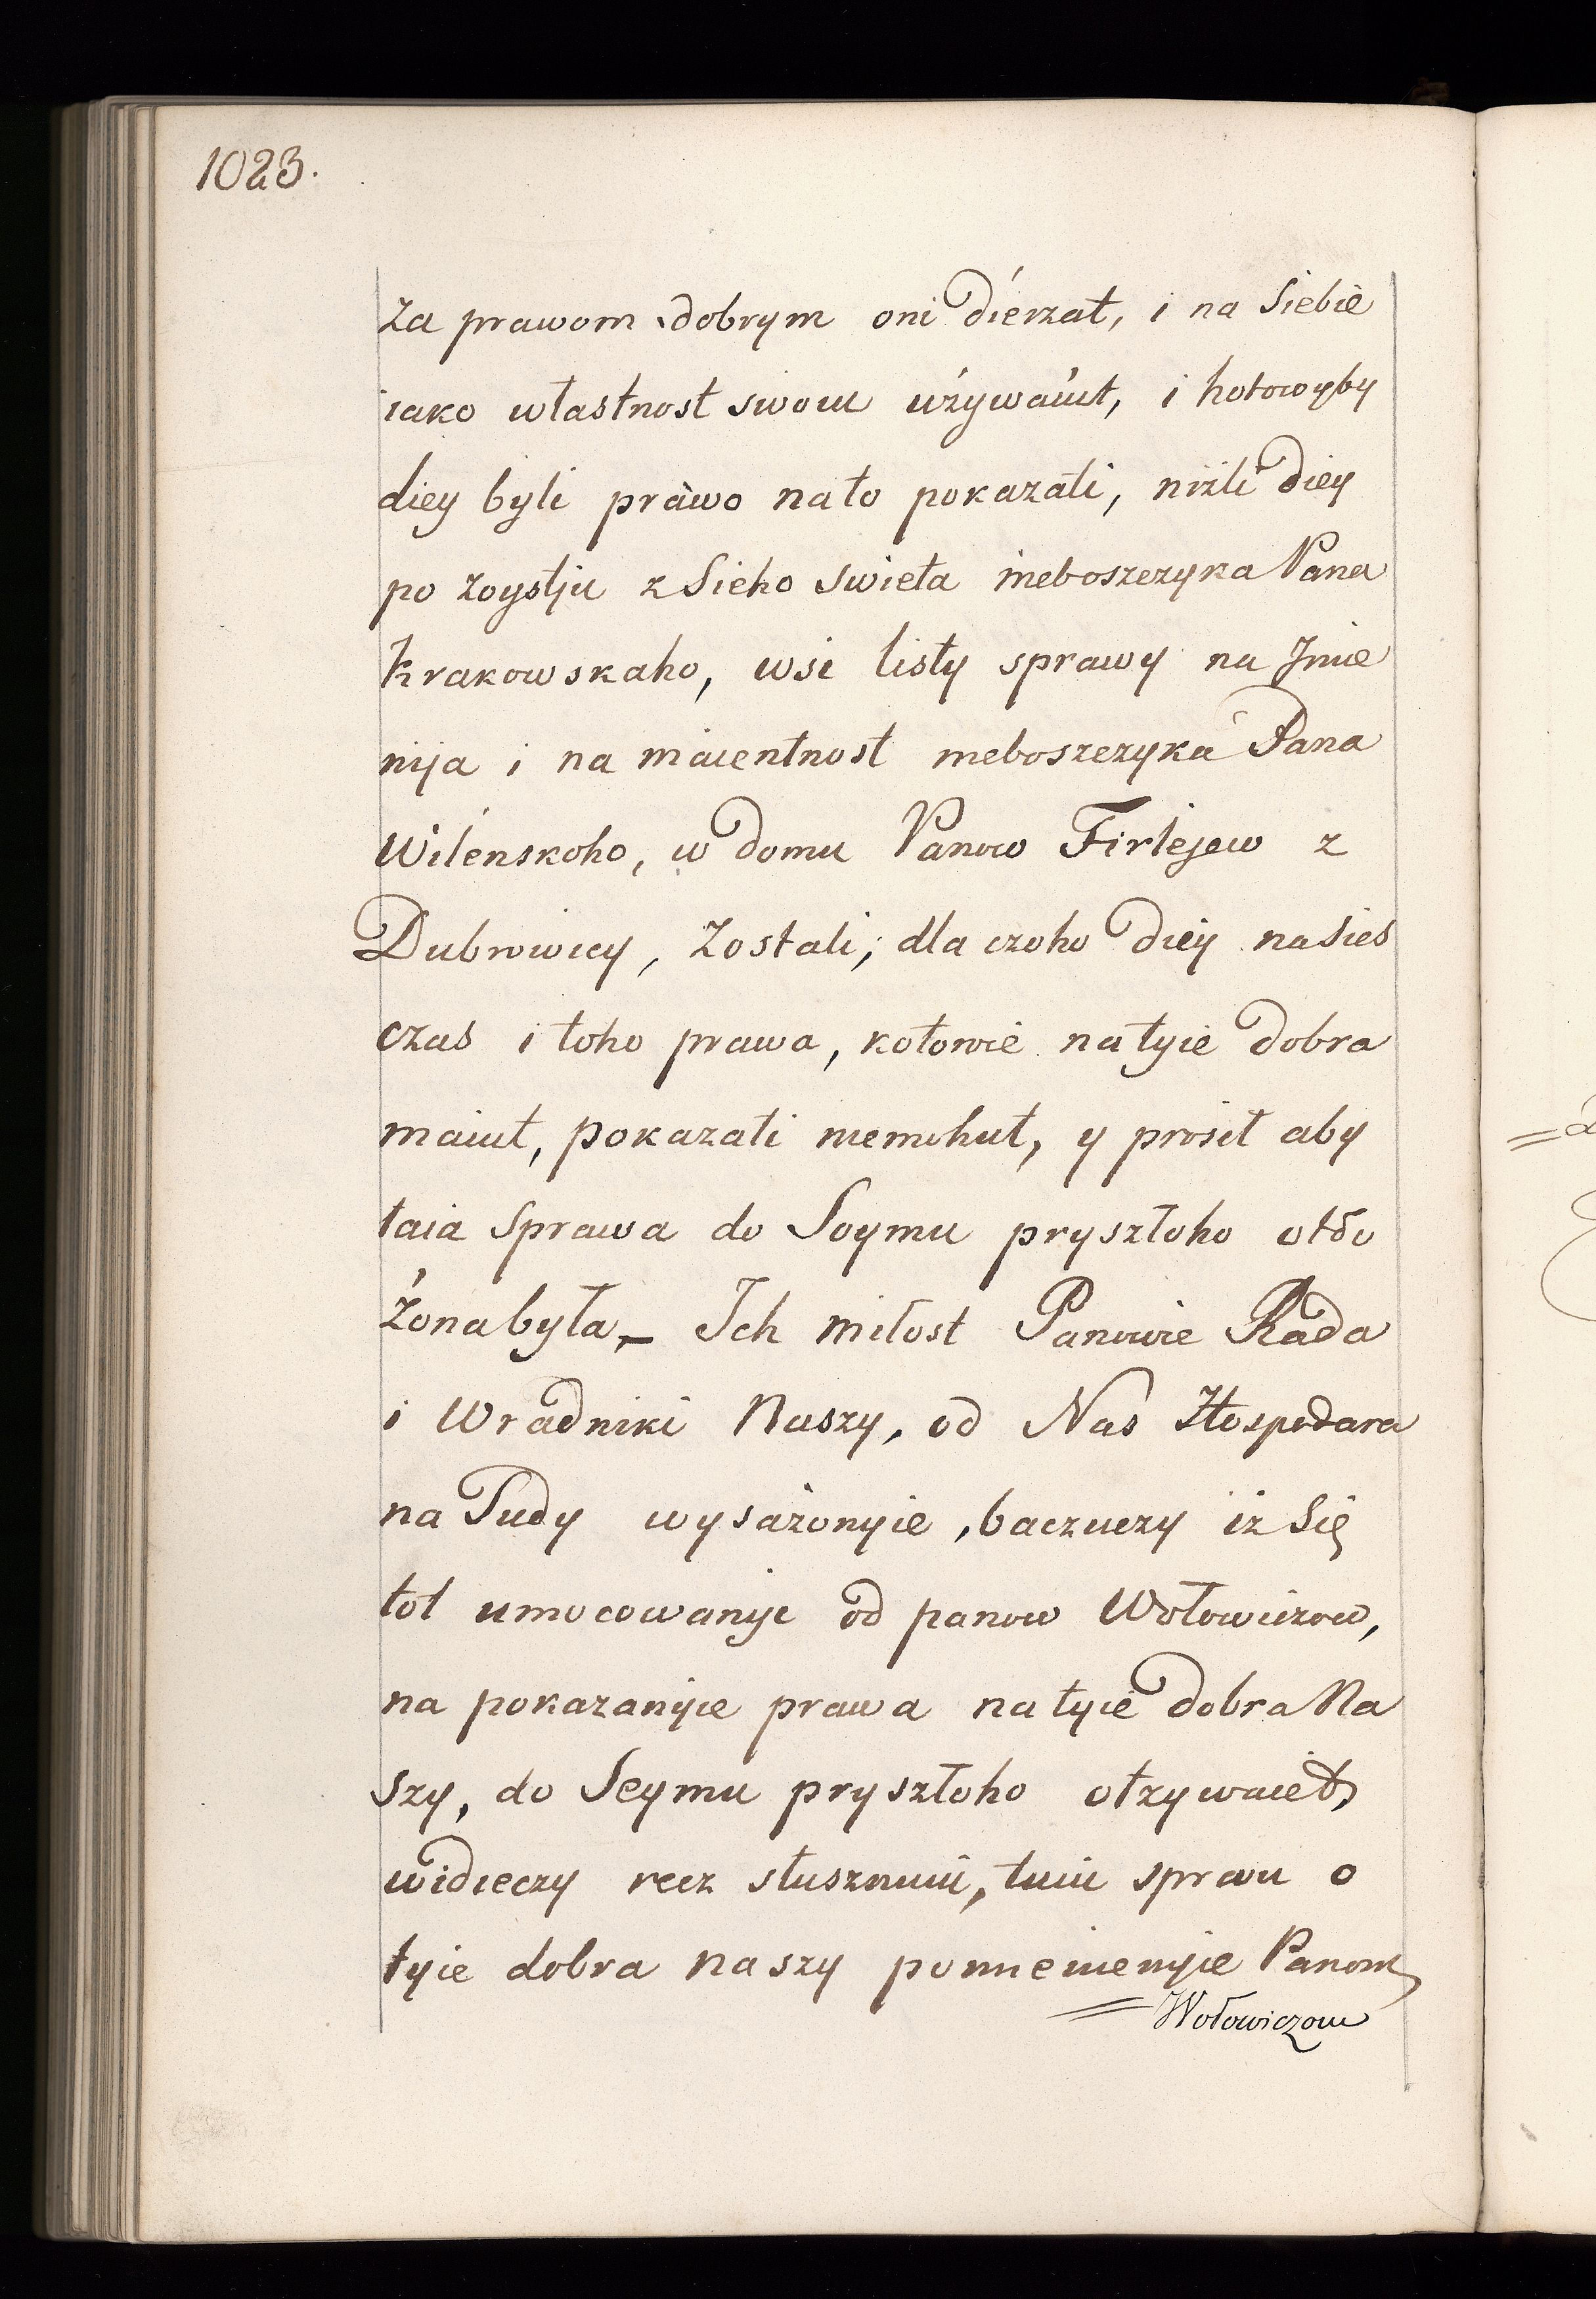 1023.
za prawom dobrym oni dierzat, i na Siebie
iako włastnost swoiu używaiut, i hotowyby
diey byli prawo nato pokazati, niżli diey
po zoystju z Sieho Swieta nieboszczyka Pana
Krakowskaho, wsi listy sprawy na Jmie
nija i na maientnost nieboszczyka Pana
Wilenskoho, w domu Panow Firlejew z
Dubrowicy, zostali; dla czoho diey na sies
czas i toho prawa, kotoroie na tyie dobra
maiut, pokazati niemohut, y prosił aby
taia Sprawa do Soymu pryszłoho otło
żona była – Ich miłost Panowie Rada
i Wradniki Naszy, od Nas Hospodara
na Sudy wysażonyie, baczuczy iż Się
tot umocowanyie od panow Wołowiczow,
na pokazanyie prawa na tyie dobra Na
szy, do Seymu pryszłoho otzywaiet,
widieczy recz słusznuiu, tuiu sprawu o
tyie dobra naszy pomienienyie Panom
= Wołowiczom